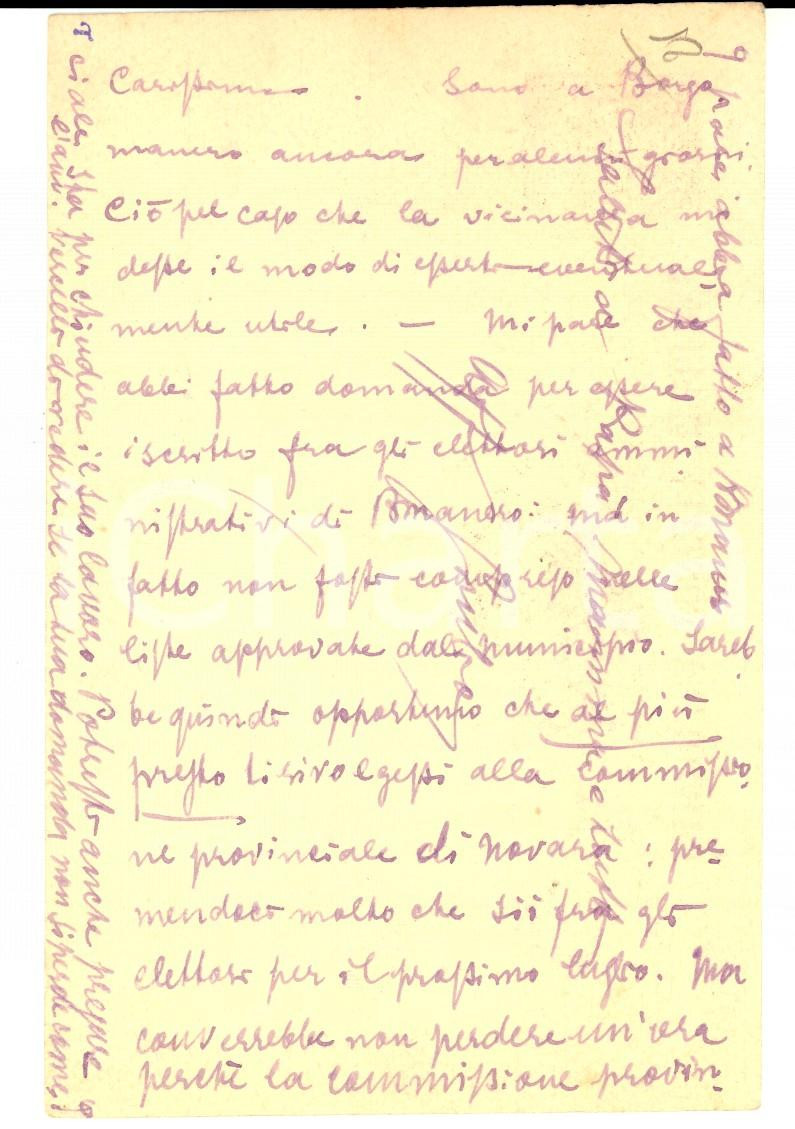 Carissimo. Sono a Borgo
manero ancora per alcuni giorni.
Ciò pel caso che la vicinanza mi
desse il modo di esserti eventual
mente utile. — Mi pare che
abbi fatto domanda per essere
iscritto fra gli elettori ammi
nistrativi di Bmanero: ma in
fatto non fosti compreso nelle
liste approvate dal municipio. Sareb
be quindi opportuno che al più
presto ti rivolgessi alla commissio
ne provinciale di Novara: pre
mendoci molto che sii fra gli
elettori per il prossimo luglio. Ma
converrebbe non perdere un'ora
perchè la commissione provin
ciale sta per chiudere il suo lavoro. Potresti anche pregare
l'avv. di vedere se la tua domanda non si perde come
abbia fatto a Bmanero
Saluti a Papà, Mamma e tutti